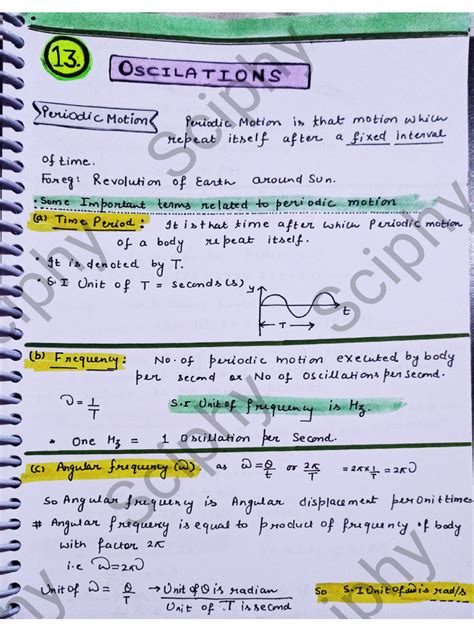 13.
OSCILATIONS
Periodic Motion
Periodic Motion is that motion which
repeat itself after a fixed interval
of time.
For eg: Revolution of Earth around Sun.
Some Important terms related to periodic motion
(a) Time Period: It is that time after which Periodic motion
of a body repeat itself.
• It is denoted by T.
• S.I Unit of T = seconds(s)
y
t
T
(b) Frequency: No. of periodic motion executed by body
per second or No of oscillations per second.
ν = 1/T
S.I Unit of frequency is Hz.
* One Hz = 1 oscillation per Second.
(c) Angular frequency (ω). as ω = θ/t or 2π/T = 2π×1/T = 2πν
So Angular frequency is Angular displacement per Unit time
# Angular frequency is equal to product of frequency of body
with factor 2π
i.e ω = 2πν
Unit of ω = θ/T → Unit of θ is radian / Unit of T is second
So S.I Unit of ω is rad/s
Sciphy
Sciphy
Sciphy
Sciphy
Sciphy